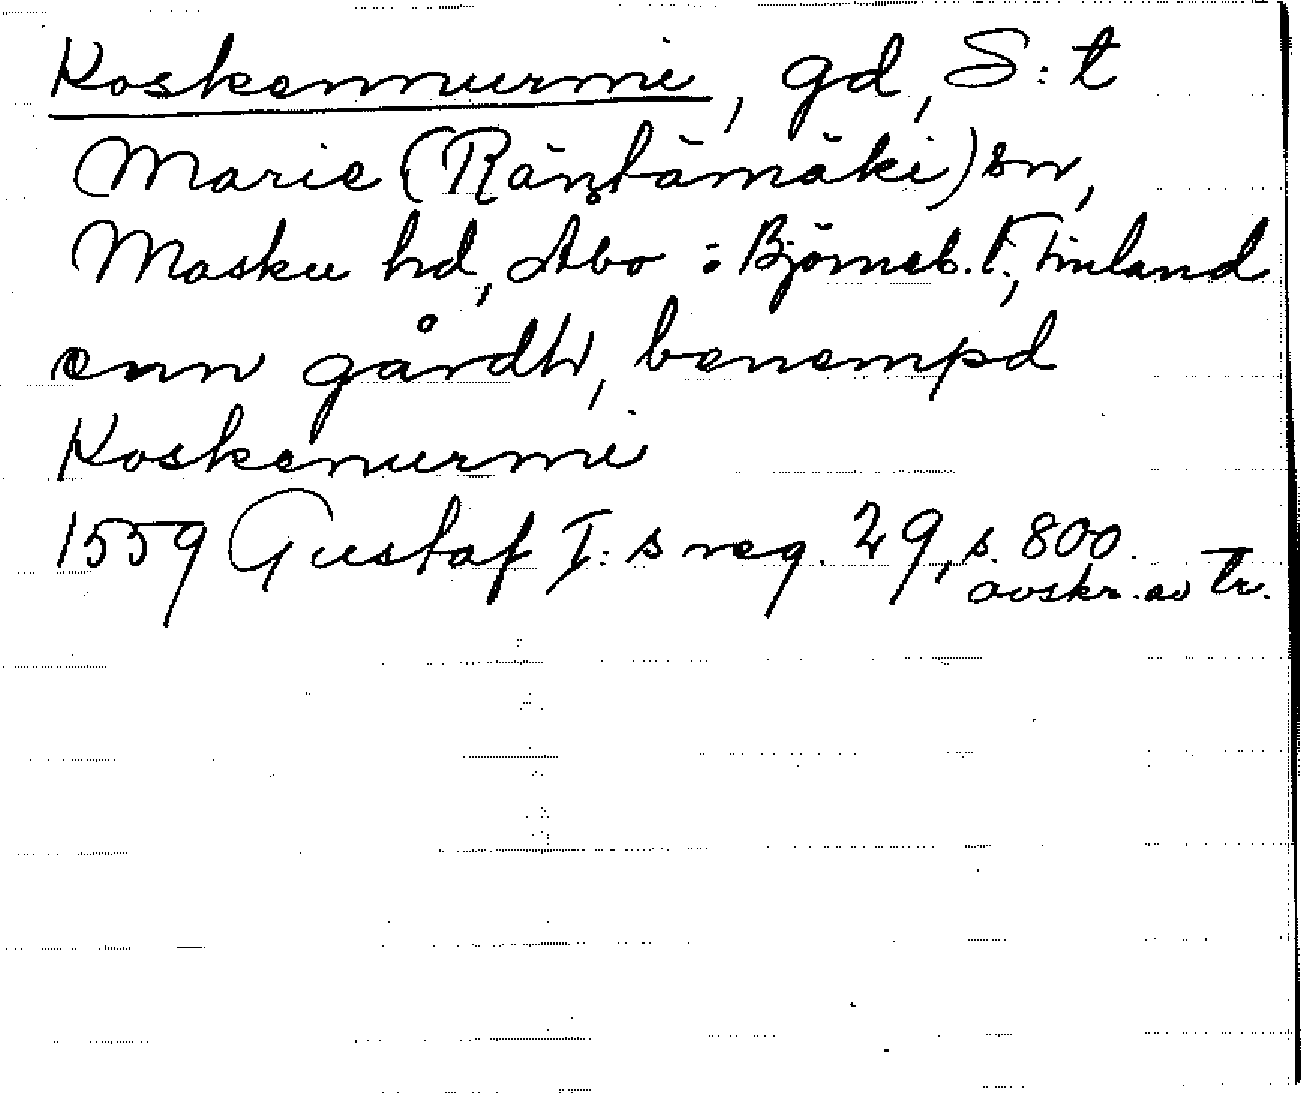 Koskennurmi, gd, S:t
Marie (Räntämäki) sn,
Masku hd, Åbo o. Björneb. l., Finland
enn gårdh, benempd
Koskenurmi
1559 Gustaf I:s reg. 29, s. 800.
avskr. av tr.